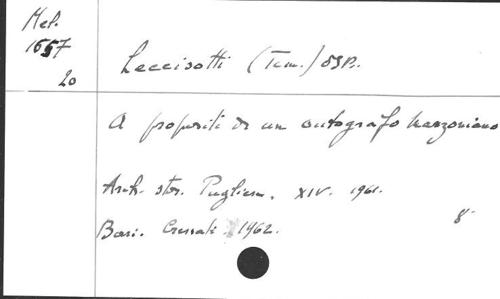 Mel.
1657
20
Leccisotti (Tom.) OSB.
A propositi di un autografo manzoniano
Arch. stor. Pugliese. XIV. 1961.
Bari. Cressati. 1962.
8°